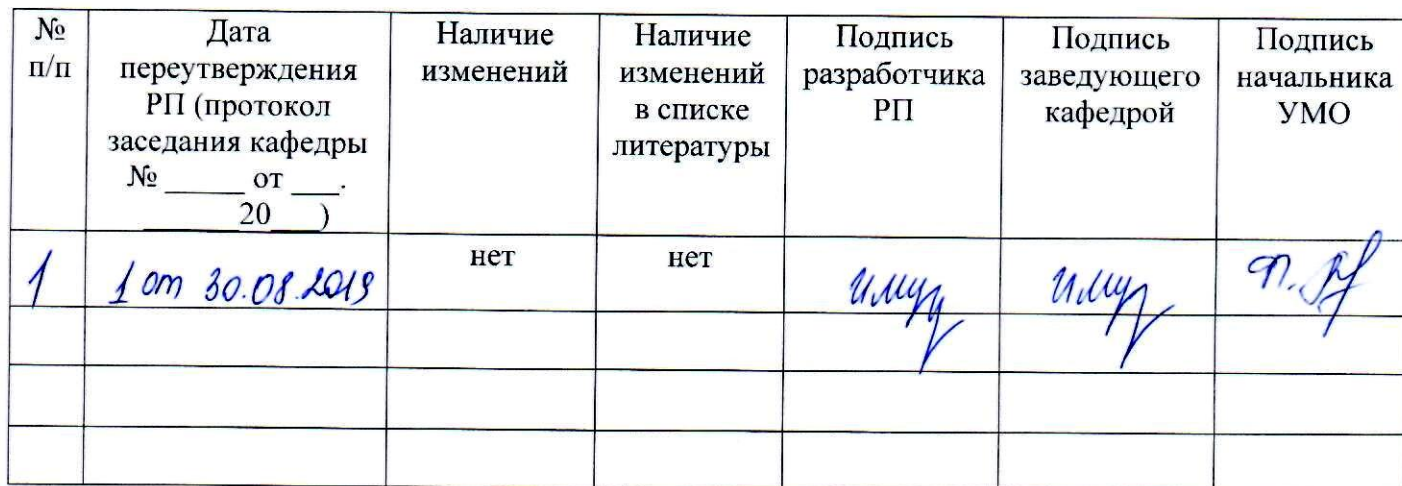 № п/п
Дата переутверждения РП (протокол заседания кафедры № _____ от ___. ______20___)
Наличие изменений
Наличие изменений в списке литературы
Подпись разработчика РП
Подпись заведующего кафедрой
Подпись начальника УМО
1
1 от 30.08.2019
нет
нет